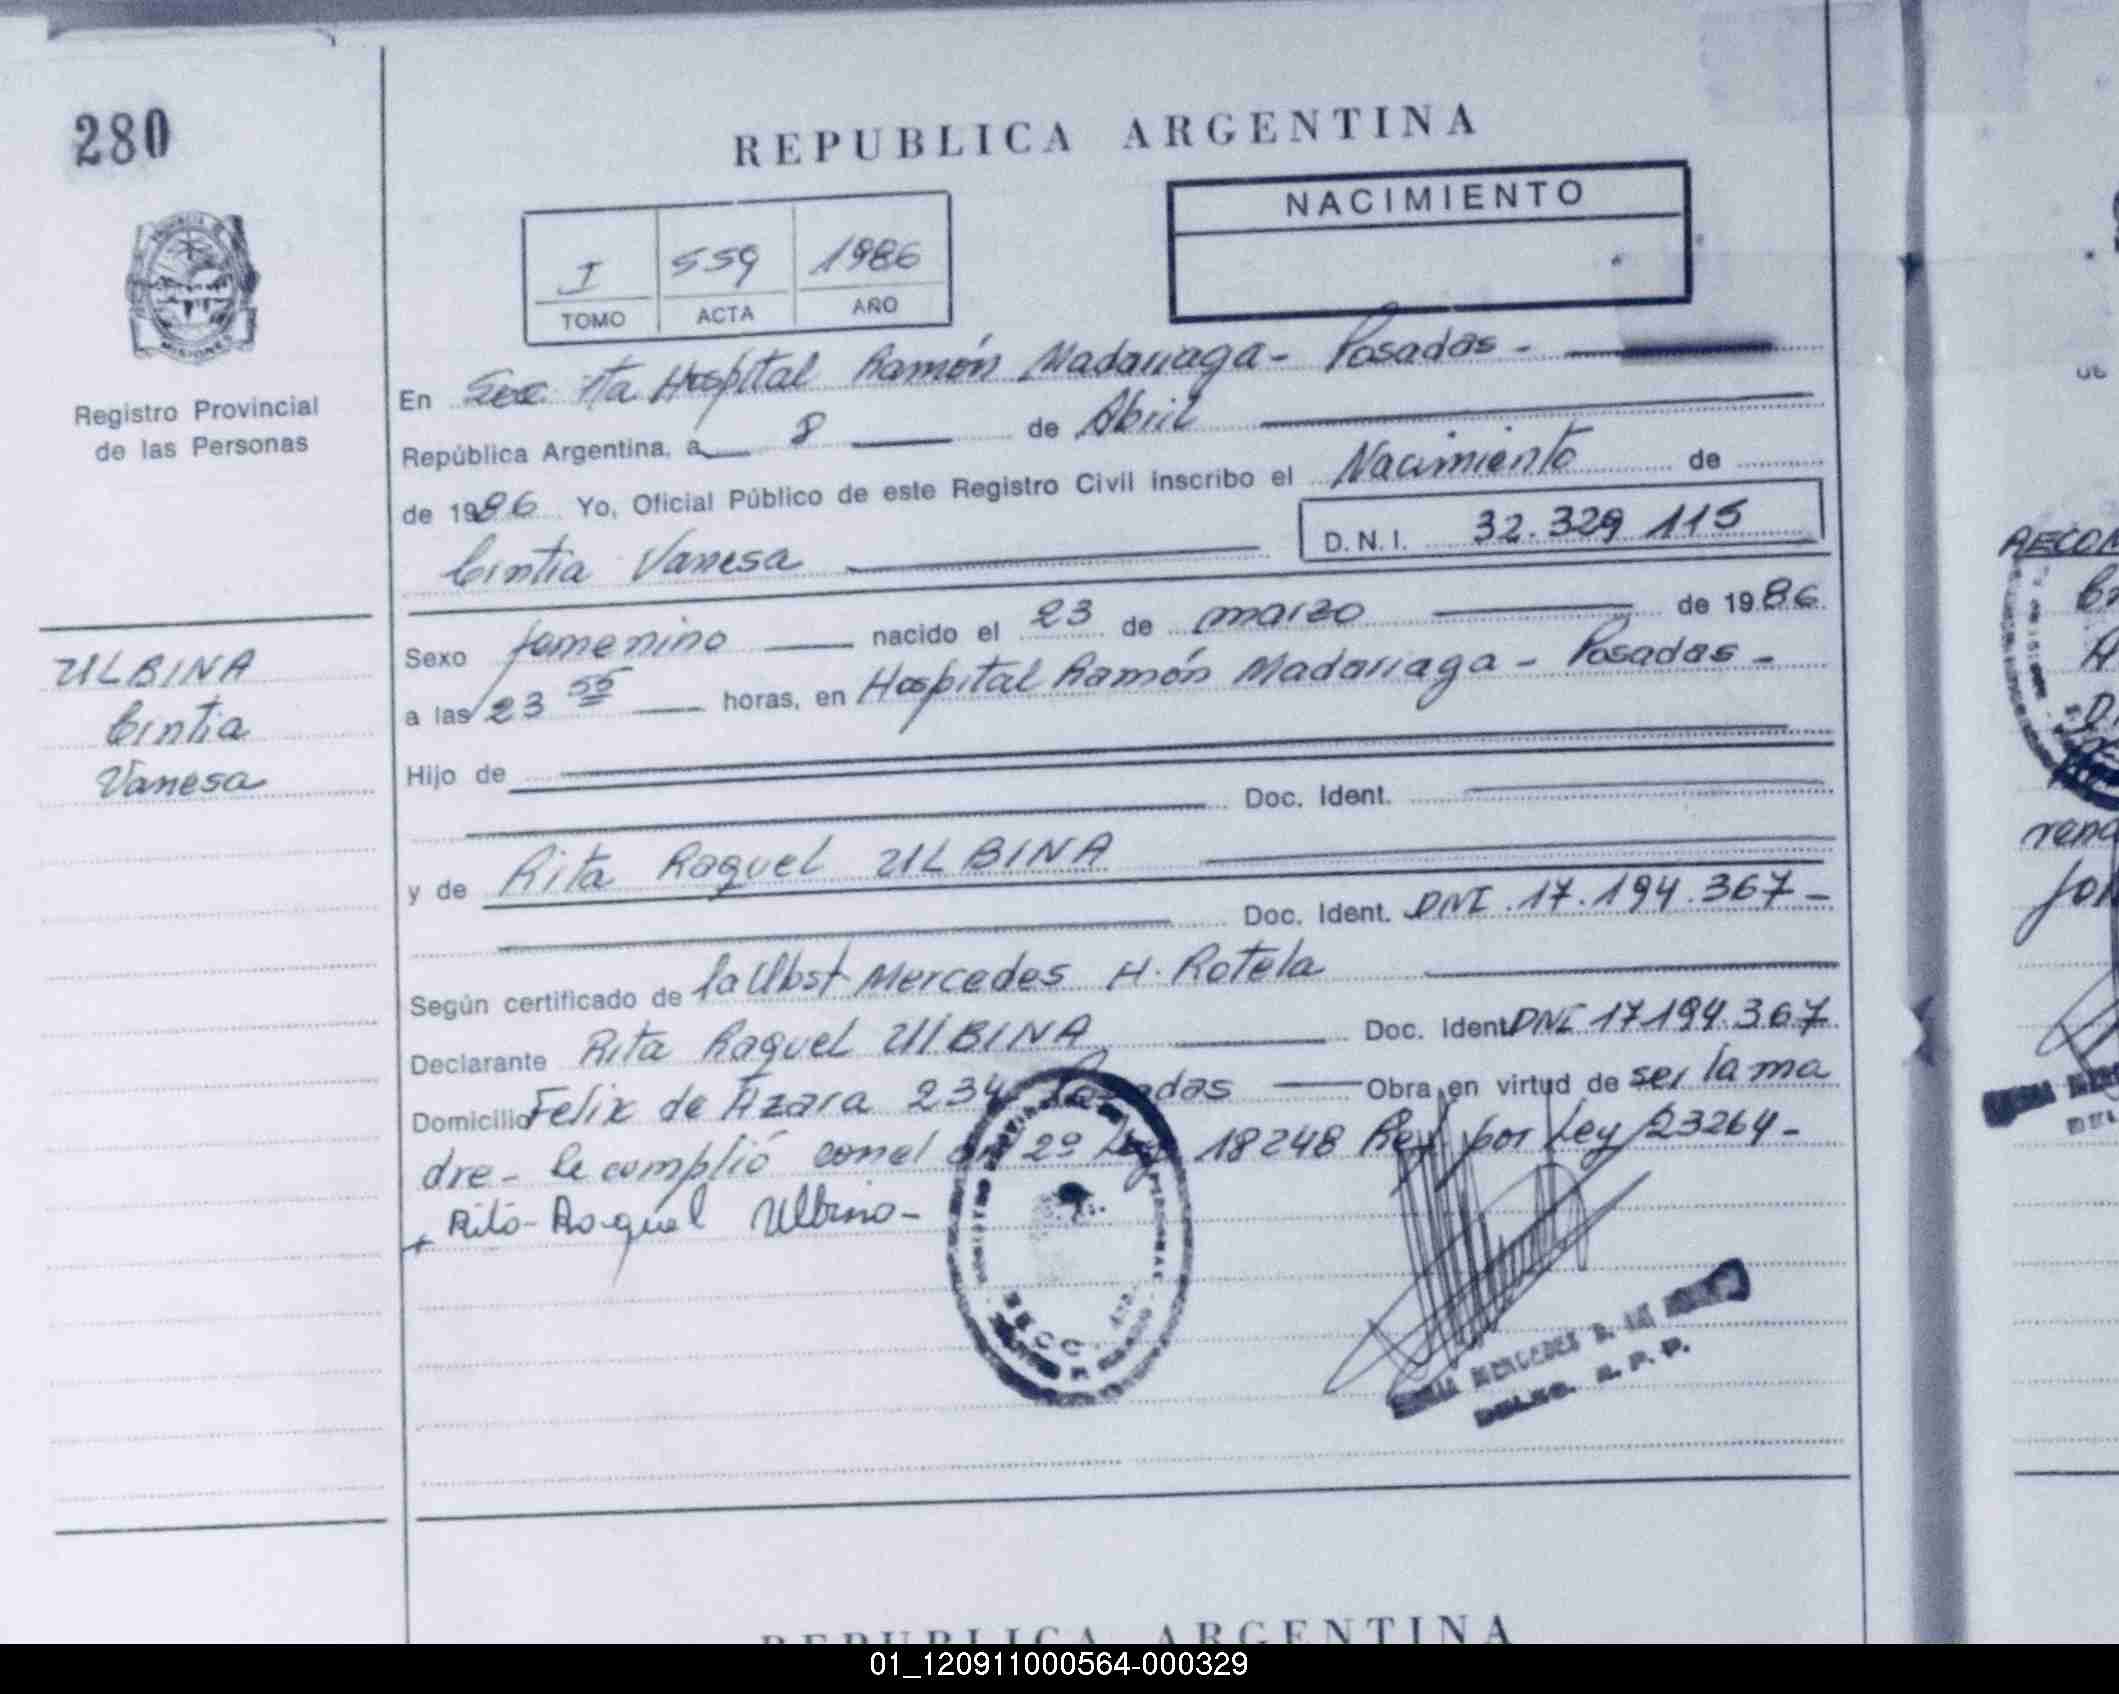 280
REPUBLICA ARGENTINA
NACIMIENTO
I 559 1986
TOMO ACTA AÑO
MISIONES
Registro Provincial
de las Personas
En Secc 1ta Hospital Ramón Madariaga - Posadas -
República Argentina, a 8 de Abril
de 1986 Yo, Oficial Público de este Registro Civil inscribo el Nacimiento de
Cintia Vanesa D.N.I. 32.329 115
Sexo femenino nacido el 23 de marzo de 1986
a las 23 55 horas, en Hospital Ramón Madariaga - Posadas -
Hijo de
Doc. Ident.
y de Rita Raquel ULBINA
Doc. Ident. DNI 17.194.367 -
Según certificado de la Obst Mercedes H. Rotela
Declarante Rita Raquel ULBINA Doc. Ident DNI 17194.367
Domicilio Felix de Azara 234 Posadas Obra en virtud de ser la ma
dre - Se cumplió con el 2º Ley 18248 Ref por Ley 23264 -
+ Rita Raquel Ulbina -
MERCEDES
DELEG. R. P. P.
ULBINA
Cintia
Vanesa
REPUBLICA ARGENTINA
RECON
01_120911000564-000329